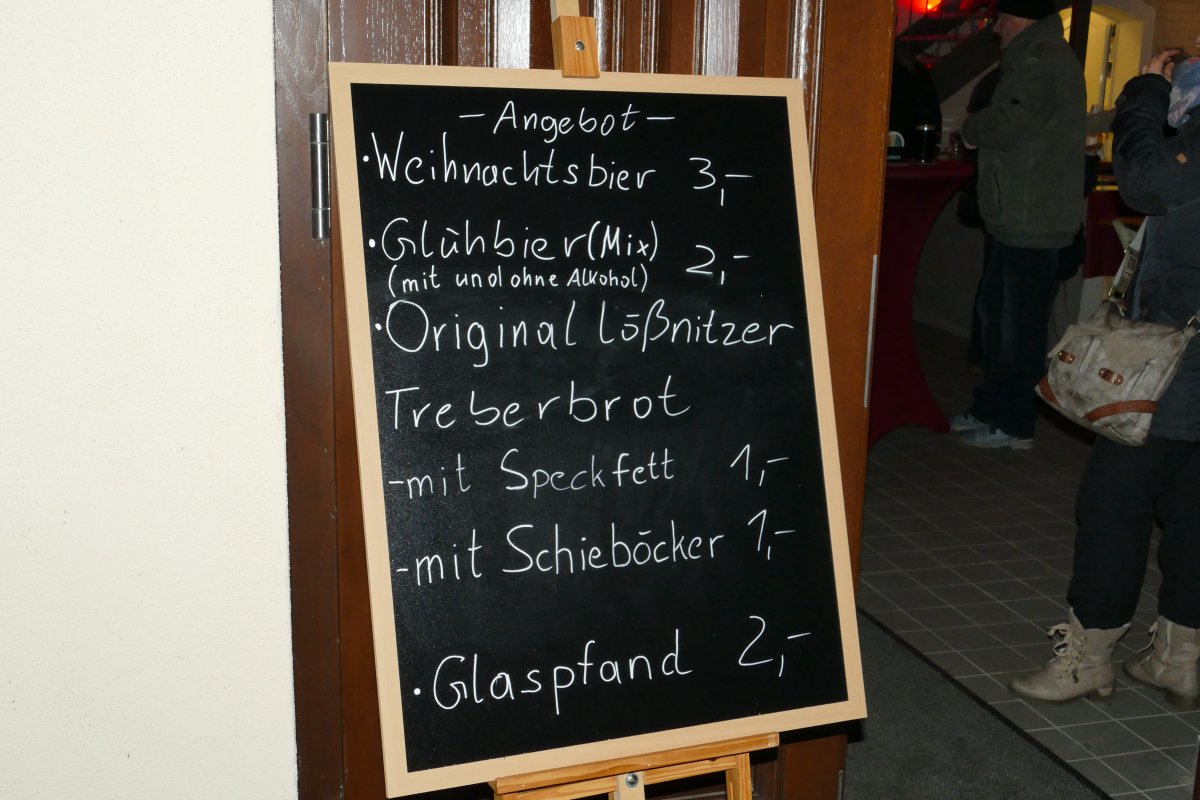 - Angebot -
· Weihnachtsbier 3,-
· Glühbier (Mix) 2,-
(mit und ohne Alkohol)
· Original Lößnitzer
Treberbrot
- mit Speckfett 1,-
- mit Schieböcker 1,-
· Glaspfand 2,-